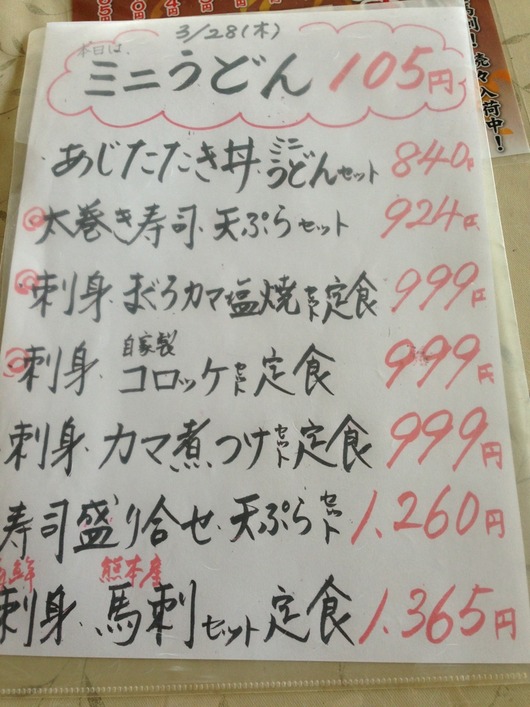 続々入荷中!
3/28(木)
本日は、
ミニうどん 105円
・あじたたき丼、ミニうどんセット 840円
・太巻き寿司、天ぷらセット 924円
・刺身、まぐろカマ塩焼セット定食 999円
・刺身、自家製コロッケセット定食 999円
刺身、カマ煮つけセット定食 999円
寿司盛り合せ、天ぷらセット 1,260円
海鮮 熊本産
刺身、馬刺セット定食 1,365円